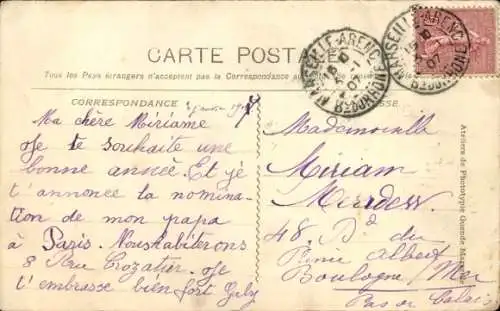 CARTE POSTALE
Tous les Pays étrangers n'acceptent pas la Correspondance au
CORRESPONDANCE
Ma chère Miriame
Je te souhaite une
bonne année. Et je
t'annonce la nomina-
tion de mon papa
à Paris. Nous habiterons
8 Rue Crozatier. Je
t'embrasse bien fort Gaby
MARSEILLE-ARENC
Bˢ DU RHONE
MARSEILLE-ARENC
Bˢ DU RHONE
Mademoiselle
Miriam
48. Bᵈ du
Prince Albert
Boulogne s/Mer
Pas de Calais
Ateliers de Phototypie